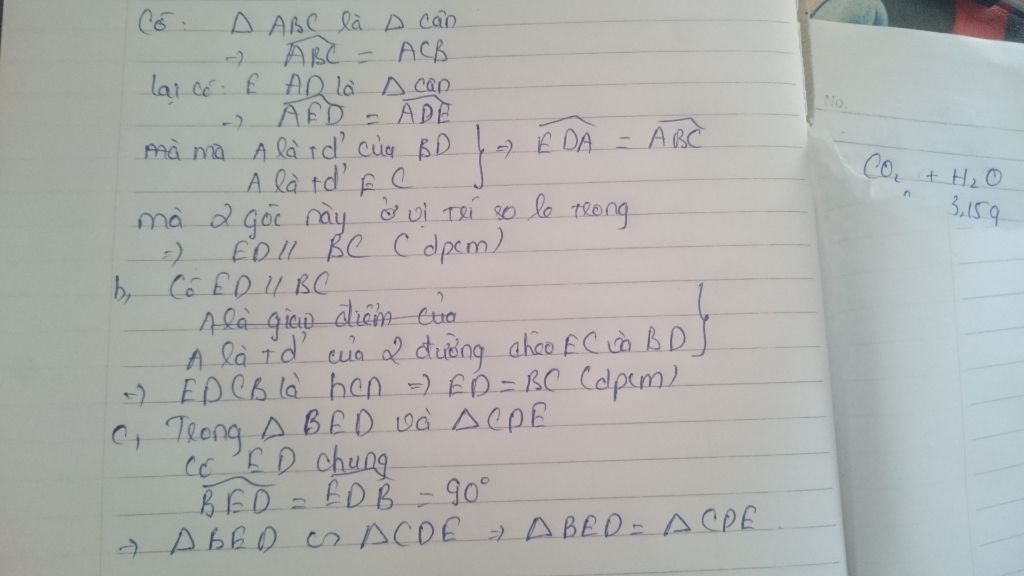 Có: Δ ABC là Δ cân
=> ABC = ACB
lại có: E AD là Δ cân
=> AED = ADE
mà ma A là tđ' của BD } => EDA = ABC
A là tđ' EC
mà 2 góc này ở vị trí so le trong
=> ED // BC (đpcm)
b, Có ED // BC
A là giao điểm của
A là tđ' của 2 đường chéo EC và BD }
=> EDCB là hcn => ED = BC (đpcm)
c, Trong Δ BED và Δ CDE
có ED chung
BED = EDB = 90°
=> Δ BED ∽ Δ CDE => Δ BED = Δ CDE
No.
CO₂ + H₂O
3,15g